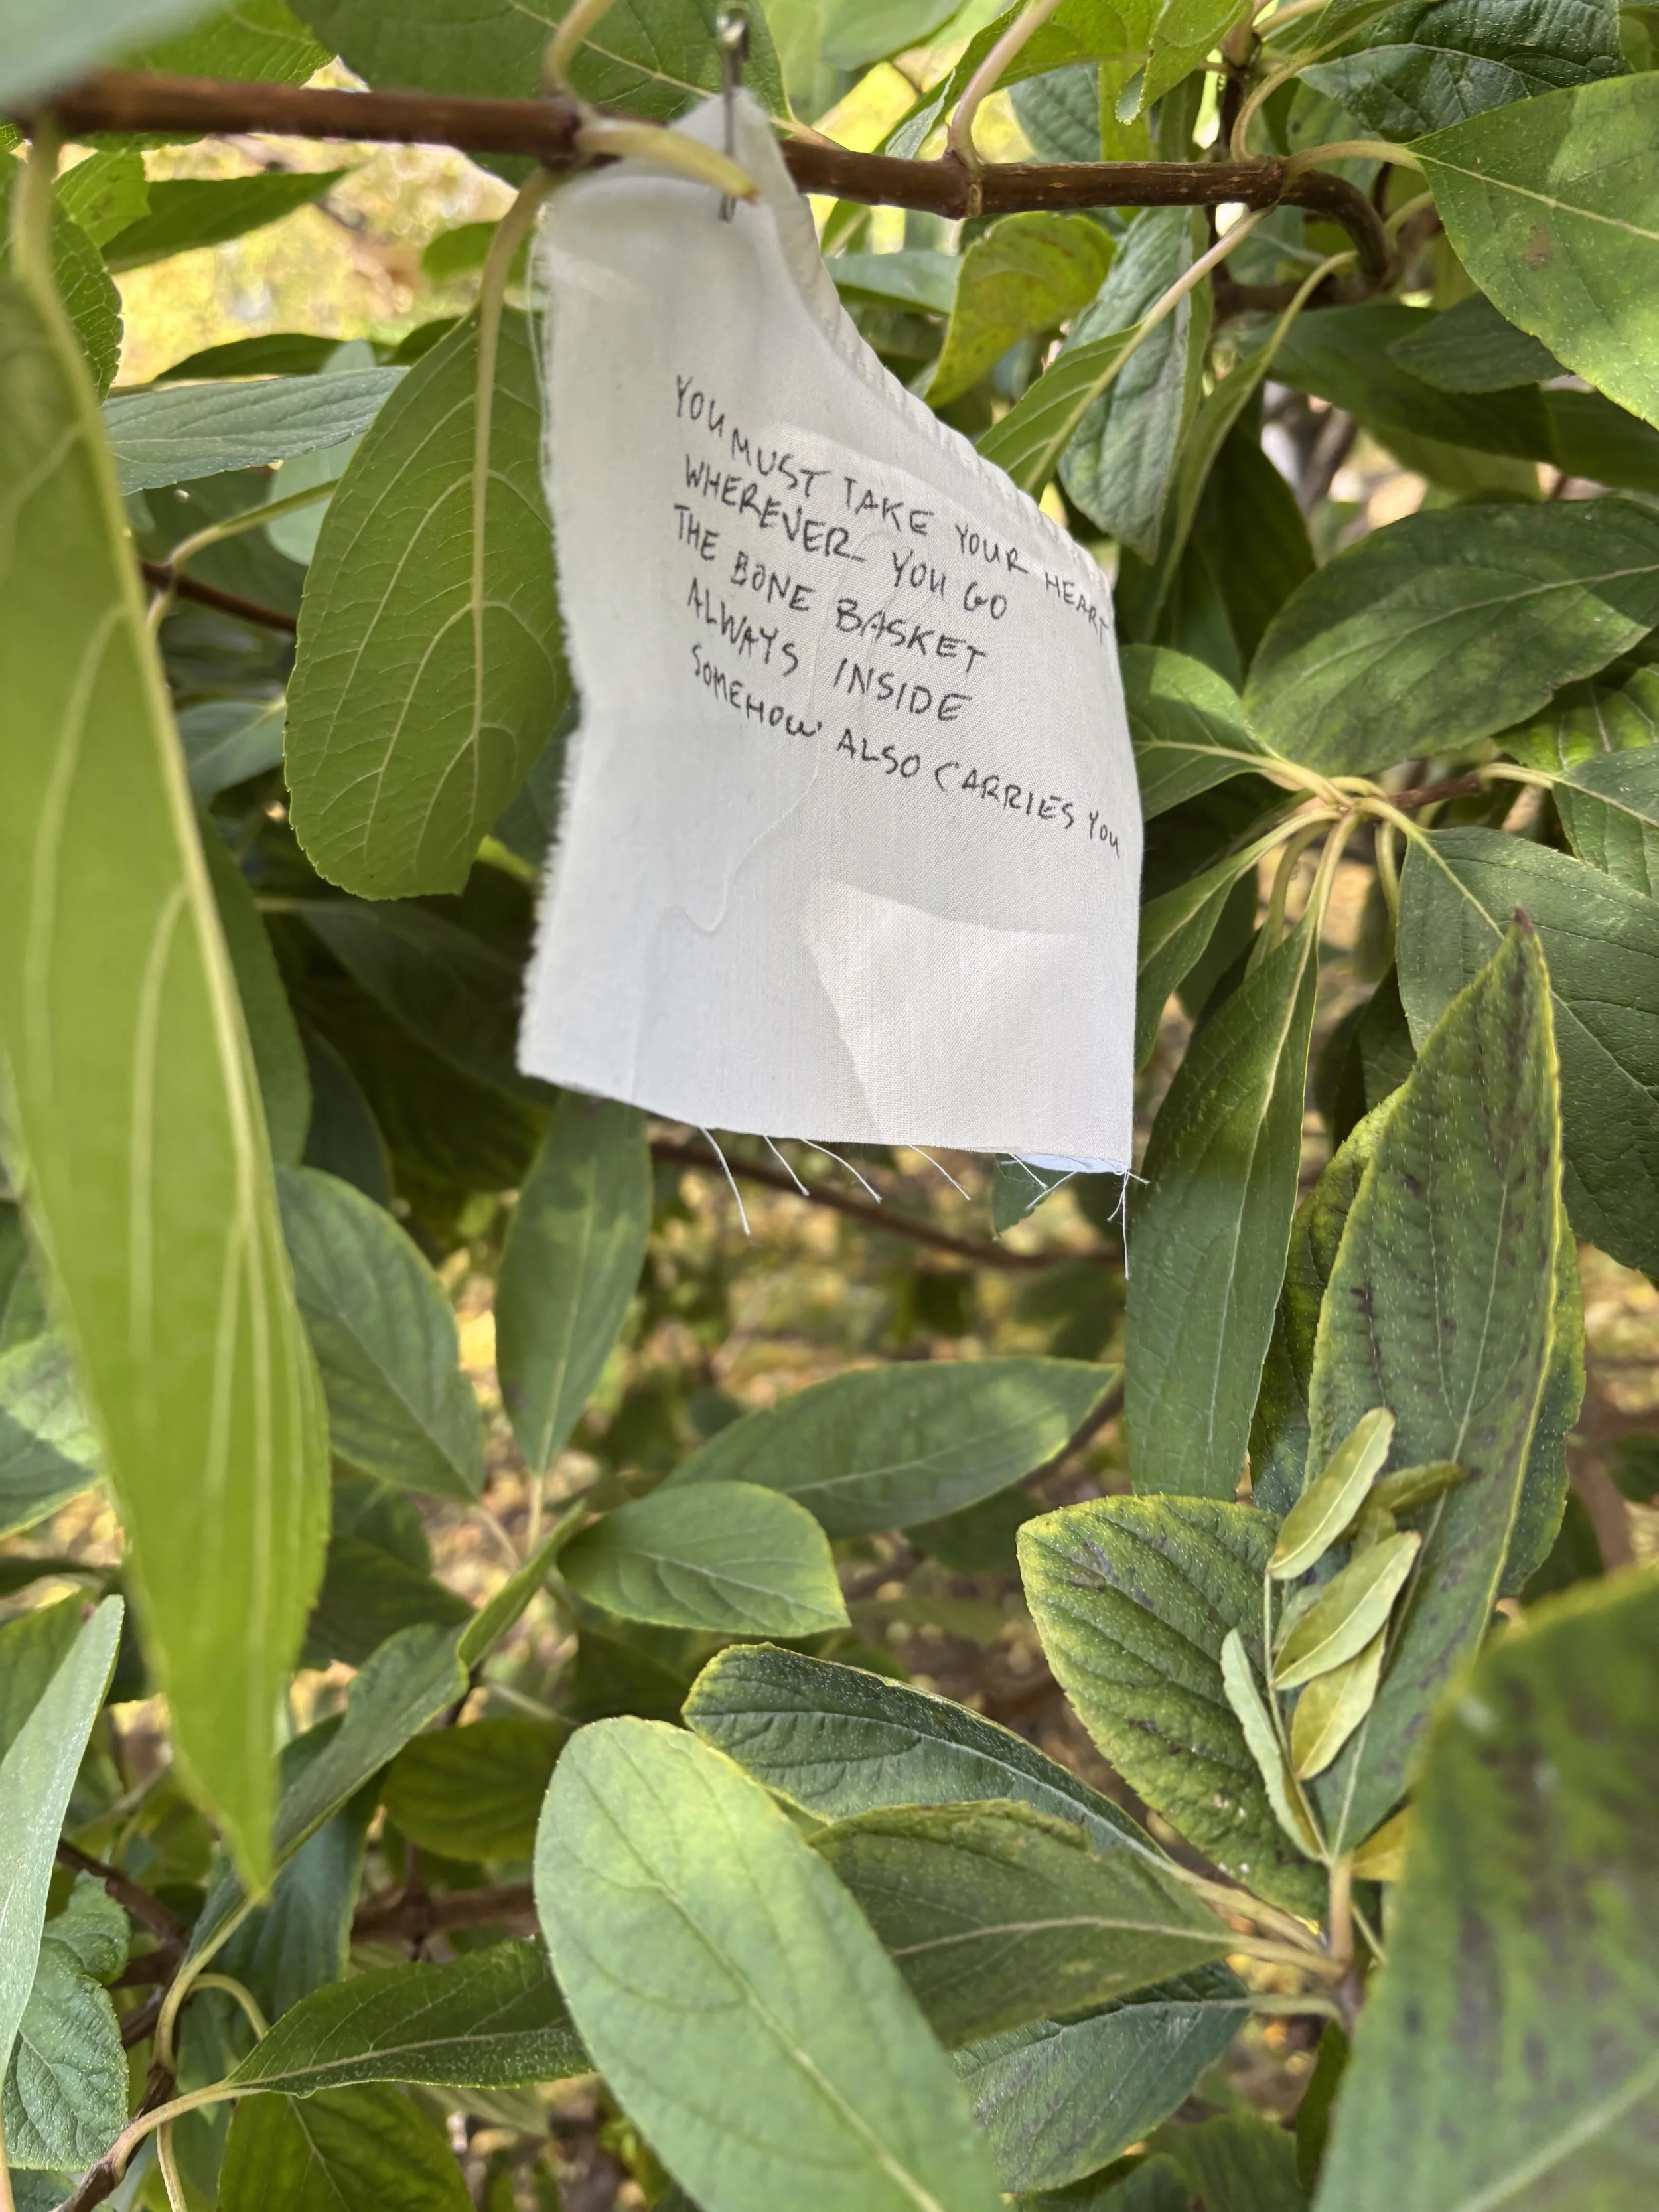 YOU MUST TAKE YOUR HEART
WHEREVER YOU GO
THE BONE BASKET
ALWAYS INSIDE
SOMEHOW ALSO CARRIES YOU